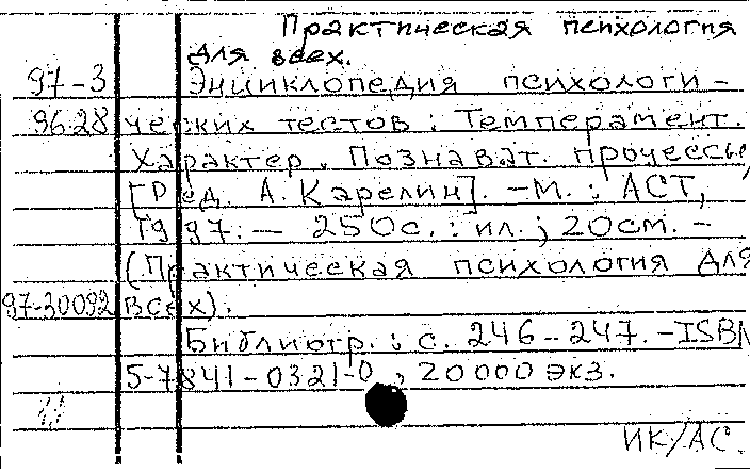 Практическая психология
для всех.
97-3 Энциклопедия психологи-
9628 ческих тестов: Темперамент.
Характер. Познават. процессы,
[Ред. А. Карелин]. -М.: АСТ,
1997. — 250с.: ил.; 20см. -
(Практическая психология для
97-30092 всех).
Библиогр.: с. 246-247. -ISBN
5-7841-0321-0, 20000 экз.
ИК/АС.